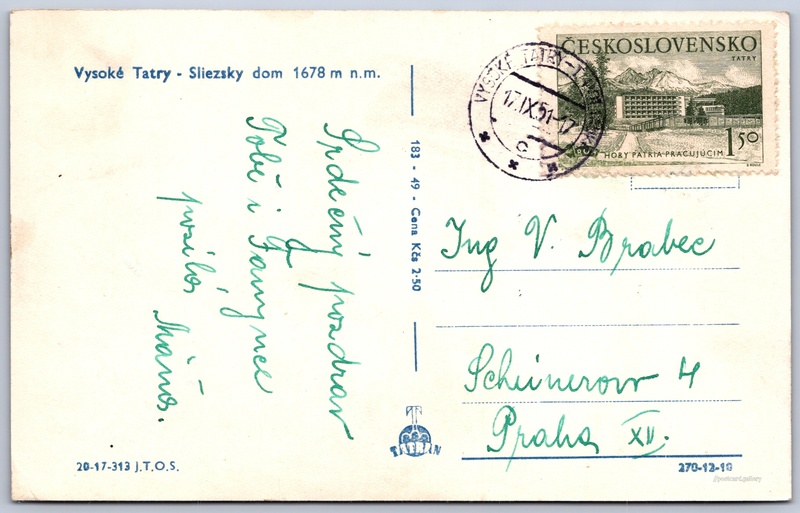 Vysoké Tatry - Sliezsky dom 1678 m n.m.
Srdečný pozdrav
Tobě i Faninee
posílá
Máňa.
183 - 49 - Cena Kčs 2·50
TATRAN
20-17-313 J.T.O.S.
VYSOKÉ TATRY
17.IX.51-17
c
ČESKOSLOVENSKO
TATRY
HORY PATRIA PRACUJÚCIM
1 50
Ing V. Brabec
Scheinerova 4
Praha XII.
270-12-10